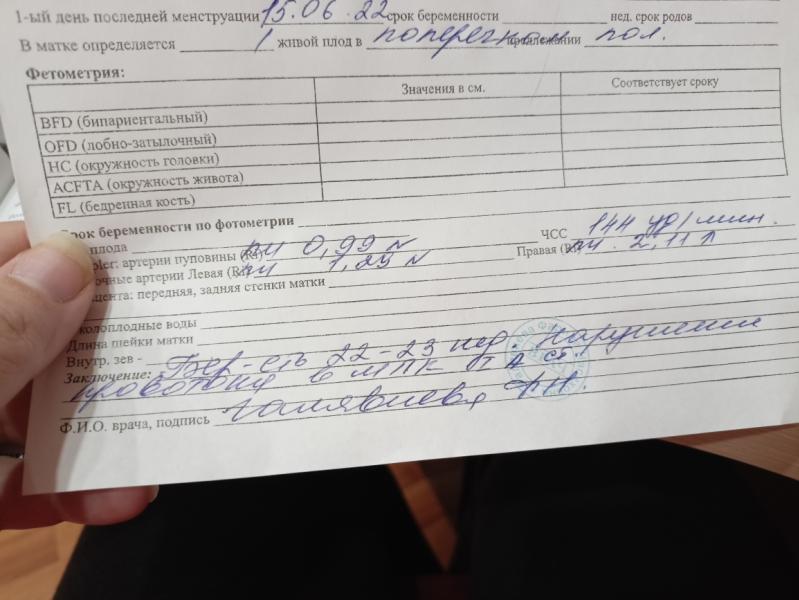 1-ый день последней менструации 15.06.22 срок беременности нед. срок родов
В матке определяется 1 живой плод в поперечном предлежании пол.
Фетометрия:
Значения в см. Соответствует сроку
BFD (бипариентальный)
OFD (лобно-затылочный)
HC (окружность головки)
ACFTA (окружность живота)
FL (бедренная кость)
Срок беременности по фотометрии
плода ЧСС 144 уд/мин.
артерии пуповины (Ri) пи 0,99 N
артерии Левая (Ri) пи 1,25 N Правая (Ri) пи 2,11 ↑
передняя, задняя стенки матки
околоплодные воды
Длина шейки матки
Внутр. зев -
Заключение: Бер-сть 22-23 нед. Нарушение
кровотока в МПК IА ст.
Ф.И.О. врача, подпись